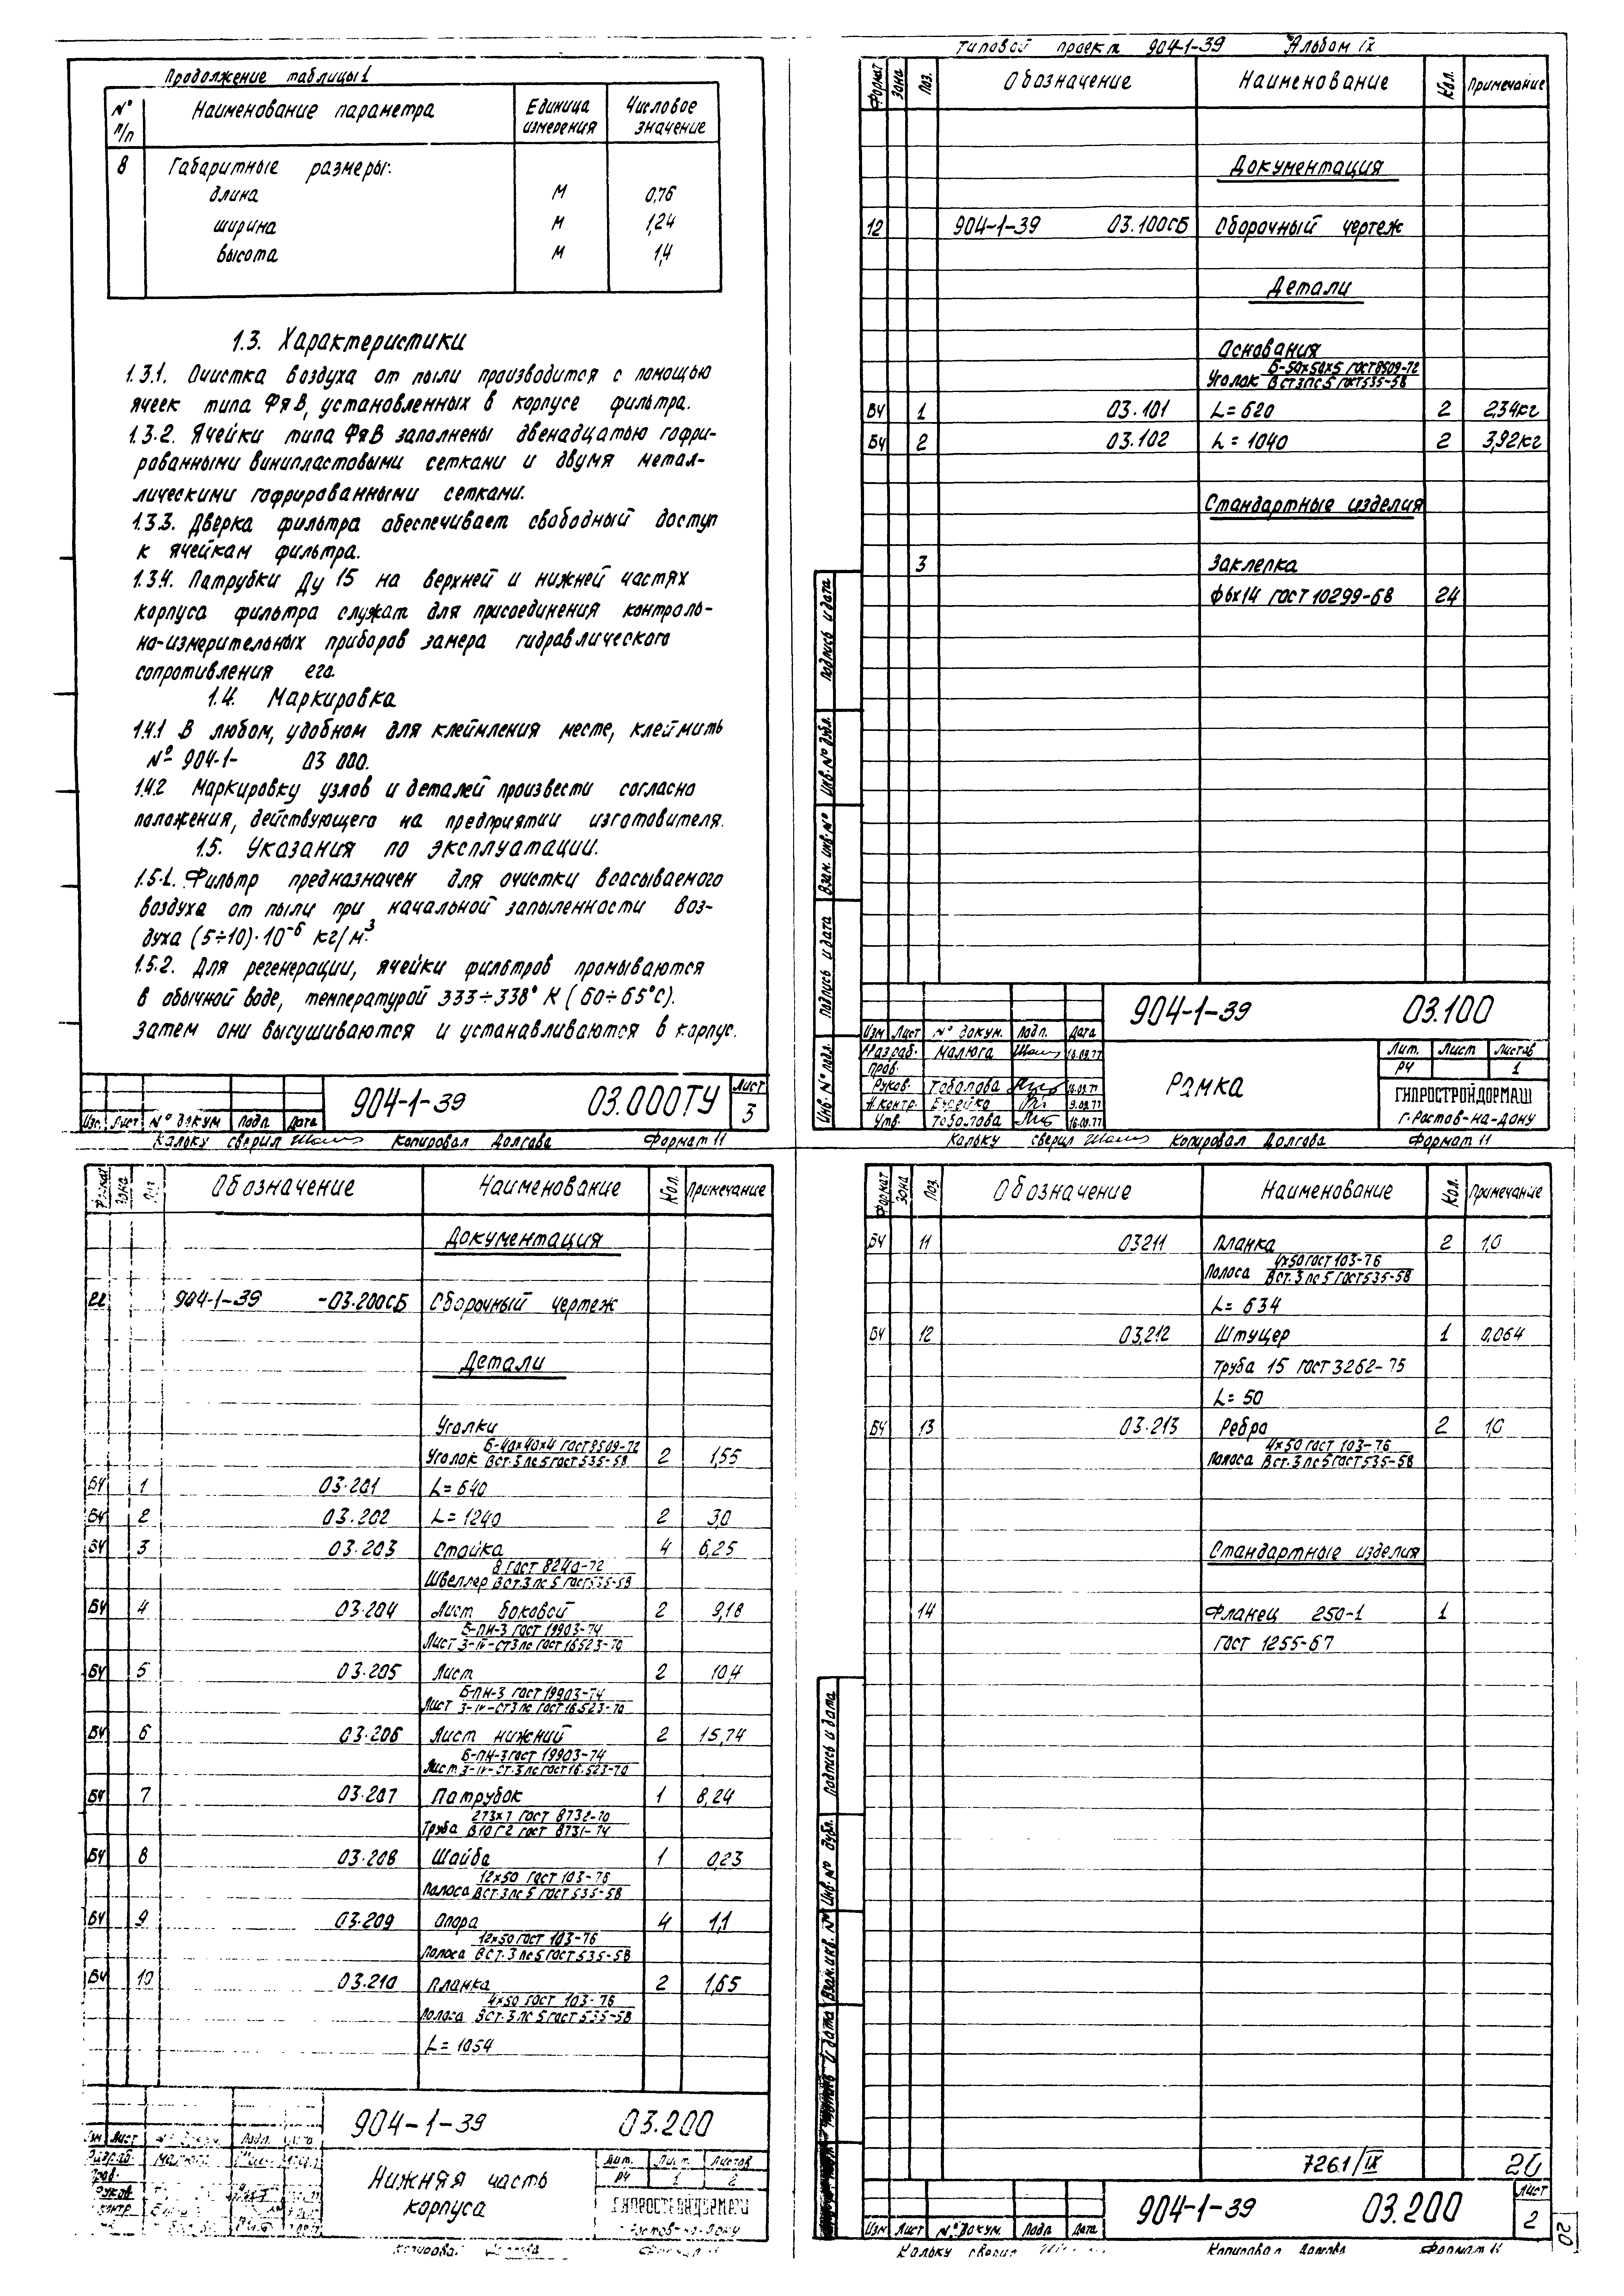 Продолжение таблицы 1
№ п/п Наименование параметра Единица измерения Числовое значение
8 Габаритные размеры:
длина м 0,76
ширина м 1,24
высота м 1,4
1.3. Характеристики
1.3.1. Очистка воздуха от пыли производится с помощью
ячеек типа ФяВ, установленных в корпусе фильтра.
1.3.2. Ячейки типа ФяВ заполнены двенадцатью гофри-
рованными винипластовыми сетками и двумя метал-
лическими гофрированными сетками.
1.3.3. Дверка фильтра обеспечивает свободный доступ
к ячейкам фильтра.
1.3.4. Патрубки Ду 15 на верхней и нижней частях
корпуса фильтра служат для присоединения контроль-
но-измерительных приборов замера гидравлического
сопротивления его.
1.4. Маркировка
1.4.1 В любом, удобном для клеймления месте, клеймить
№ 904-1- 03 000.
1.4.2 Маркировку узлов и деталей произвести согласно
положения, действующего на предприятии изготовителя.
1.5. Указания по эксплуатации.
1.5.1. Фильтр предназначен для очистки всасываемого
воздуха от пыли при начальной запыленности воз-
духа (5÷10)·10⁻⁶ кг/м³.
1.5.2. Для регенерации, ячейки фильтров промываются
в обычной воде, температурой 333÷338° К (60÷65°С).
Затем они высушиваются и устанавливаются в корпус.
904-1-39 03.000ТУ Лист 3
Изм. Лист № докум Подп. Дата
Кальку сверил Копировал Долгова Формат 11
Типовой проект 904-1-39 Альбом IX
Формат Зона Поз. Обозначение Наименование Кол. Примечание
Документация
12 904-1-39 03.100СБ Сборочный чертеж
Детали
Основания
Уголок Б-50х50х5 ГОСТ 8509-72
В СТ3ПС5 ГОСТ 535-58
БЧ 1 03.101 L=620 2 2,34кг
БЧ 2 03.102 L=1040 2 3,92кг
Стандартные изделия
3 Заклепка
ф6х14 ГОСТ 10299-68 24
Подпись и дата
Инв. № дубл.
Взам. инв. №
Подпись и дата
Инв. № подл.
904-1-39 03.100
Изм Лист № докум. Подп. Дата
Разраб. Малюга 16.09.77
Пров.
Руков. Тоболова
Н.контр. 9.09.77
Утв. Тоболова 16.09.77
Рамка
Лит. Лист Листов
РЧ 1
ГИПРОСТРОЙДОРМАШ
г. Ростов-на-Дону
Кальку сверил Копировал Долгова Формат 11
Формат Зона Поз. Обозначение Наименование Кол. Примечание
Документация
22 904-1-39 -03.200СБ Сборочный чертеж
Детали
Уголки
Уголок Б-40х40х4 ГОСТ 8509-72
ВСт.3пс5 ГОСТ 535-58 2 1,55
БЧ 1 03.201 L=640
БЧ 2 03.202 L=1240 2 3,0
БЧ 3 03.203 Стойка 4 6,25
Швеллер 8 ГОСТ 8240-72
ВСт.3пс5 ГОСТ 535-58
БЧ 4 03.204 Лист боковой 2 9,18
Лист Б-ПН-3 ГОСТ 19903-74
3-IV-Ст3пс ГОСТ 16523-70
БЧ 5 03.205 Лист 2 10,4
Лист Б-ПН-3 ГОСТ 19903-74
3-IV-Ст3пс ГОСТ 16523-70
БЧ 6 03.206 Лист нижний 2 15,74
Лист Б-ПН-3 ГОСТ 19903-74
3-IV-Ст.3пс ГОСТ 16.523-70
БЧ 7 03.207 Патрубок 1 8,24
Труба 273х7 ГОСТ 8732-70
В10Г2 ГОСТ 8731-74
БЧ 8 03.208 Шайба 1 0,23
Полоса 12х50 ГОСТ 103-76
ВСт3пс5 ГОСТ 535-58
БЧ 9 03.209 Опора 4 1,1
Полоса 12х50 ГОСТ 103-76
ВСт.3пс5 ГОСТ 535-58
БЧ 10 03.210 Планка 2 1,65
Полоса 4х50 ГОСТ 103-76
ВСт.3пс5 ГОСТ 535-58
L=1054
904-1-39 03.200
Изм Лист Подп.
Нижняя часть
корпуса
Лит. Лист. Листов
РЧ 1 2
ГИПРОСТРОЙДОРМАШ
Ростов-на-Дону
Копировал
Формат Зона Поз. Обозначение Наименование Кол. Примечание
БЧ 11 03211 Планка 2 1,0
Полоса 4х50 ГОСТ 103-76
ВСт.3пс5 ГОСТ 535-58
L=634
БЧ 12 03.212 Штуцер 1 0,064
Труба 15 ГОСТ 3262-75
L=50
БЧ 13 03.213 Ребро 2 1,0
Полоса 4х50 ГОСТ 103-76
ВСт.3пс5 ГОСТ 535-58
Стандартные изделия
14 Фланец 250-1 1
ГОСТ 1255-67
Подпись и дата
Инв. № дубл.
Взам. инв. №
и дата
7261/IX 20
904-1-39 03.200 Лист 2
Изм Лист № докум. Подп Дата
Кальку сверил Копировал Долгова Формат 11
20